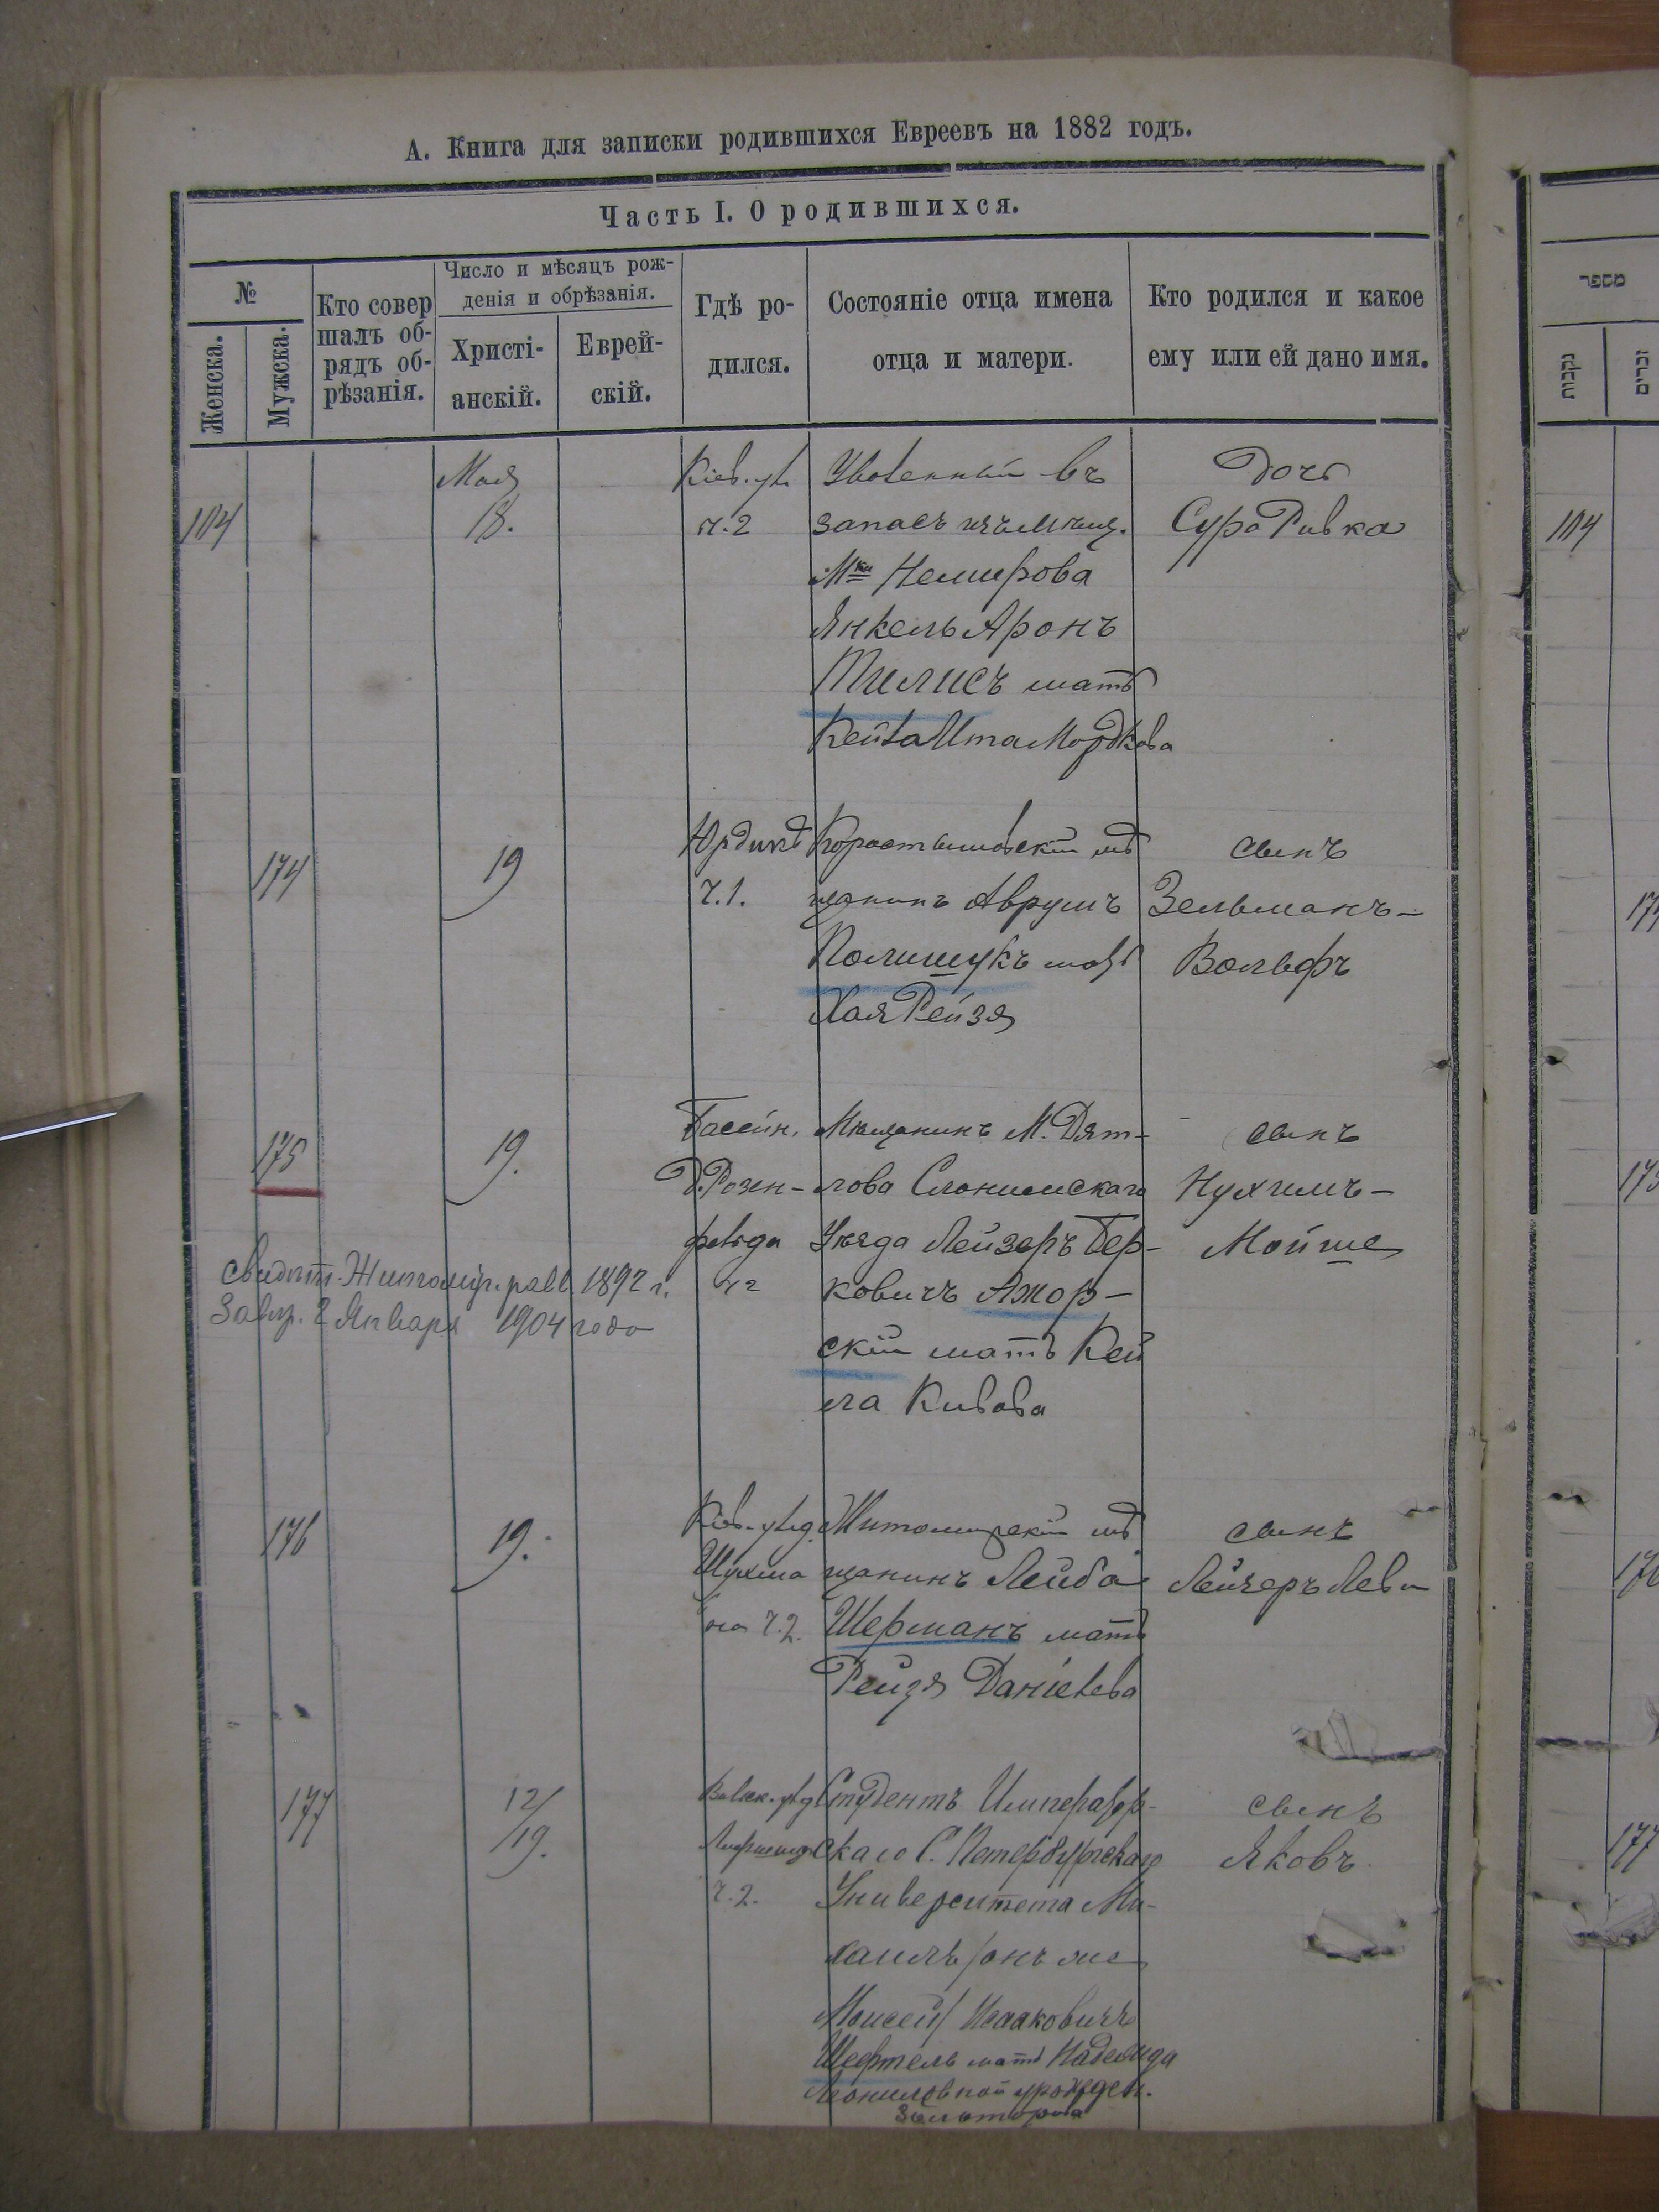 А. Книга для записки родившихся Евреевъ на 1882 годъ.
Часть I. О родившихся.
№
Женска.
Мужска.
Кто совер
шалъ об-
рядъ об-
рѣзанія.
Число и мѣсяцъ рож-
денія и обрѣзанія.
Христі-
анскій.
Еврей-
скій.
Гдѣ ро-
дился.
Состояніе отца имена
отца и матери.
Кто родился и какое
ему или ей дано имя.
104
Мая
18.
Кіев. ул.
ч. 2
Уволенный въ
запасъ изъ мѣщ.
Мки Немирова
Янкель Аронъ
Тилисъ мать
Кейла Ита Мордкова
дочь
Сура Ривка
174
19
ч. 1.
Коростышовскій мѣ
щанинъ Аврумъ
Полищукъ мать
Хая Рейзя
сынъ
Зельманъ-
Вольфъ
175
19.
Бассейн.
д. Розен-
фельда
ч 2
Мѣщанинъ М. Дят-
лова Слонимскаго
Уѣзда Лейзеръ Бер-
ковичъ Ажор-
скій мать Кей
ла Кивова
сынъ
Нухимъ-
Мойше
свидѣт. Житомір. рабб. 1892 г.
2 Января 1904 года
176
19.
Кіев. ул. д.
ч. 2.
Житомирскій мѣ
щанинъ Лейба
Шерманъ мать
Рейзя Даніелева
сынъ
Лейзеръ Леви
177
12/
/19.
ч. 2.
Студентъ Император-
скаго С. Петербургскаго
Университета Ми-
хаилъ /онъ же
Моисей/ Исааковичъ
Шефтель мать Надежда
урожден.
сынъ
Яковъ
מספר
נקבות
זכרים
104
174
175
176
177